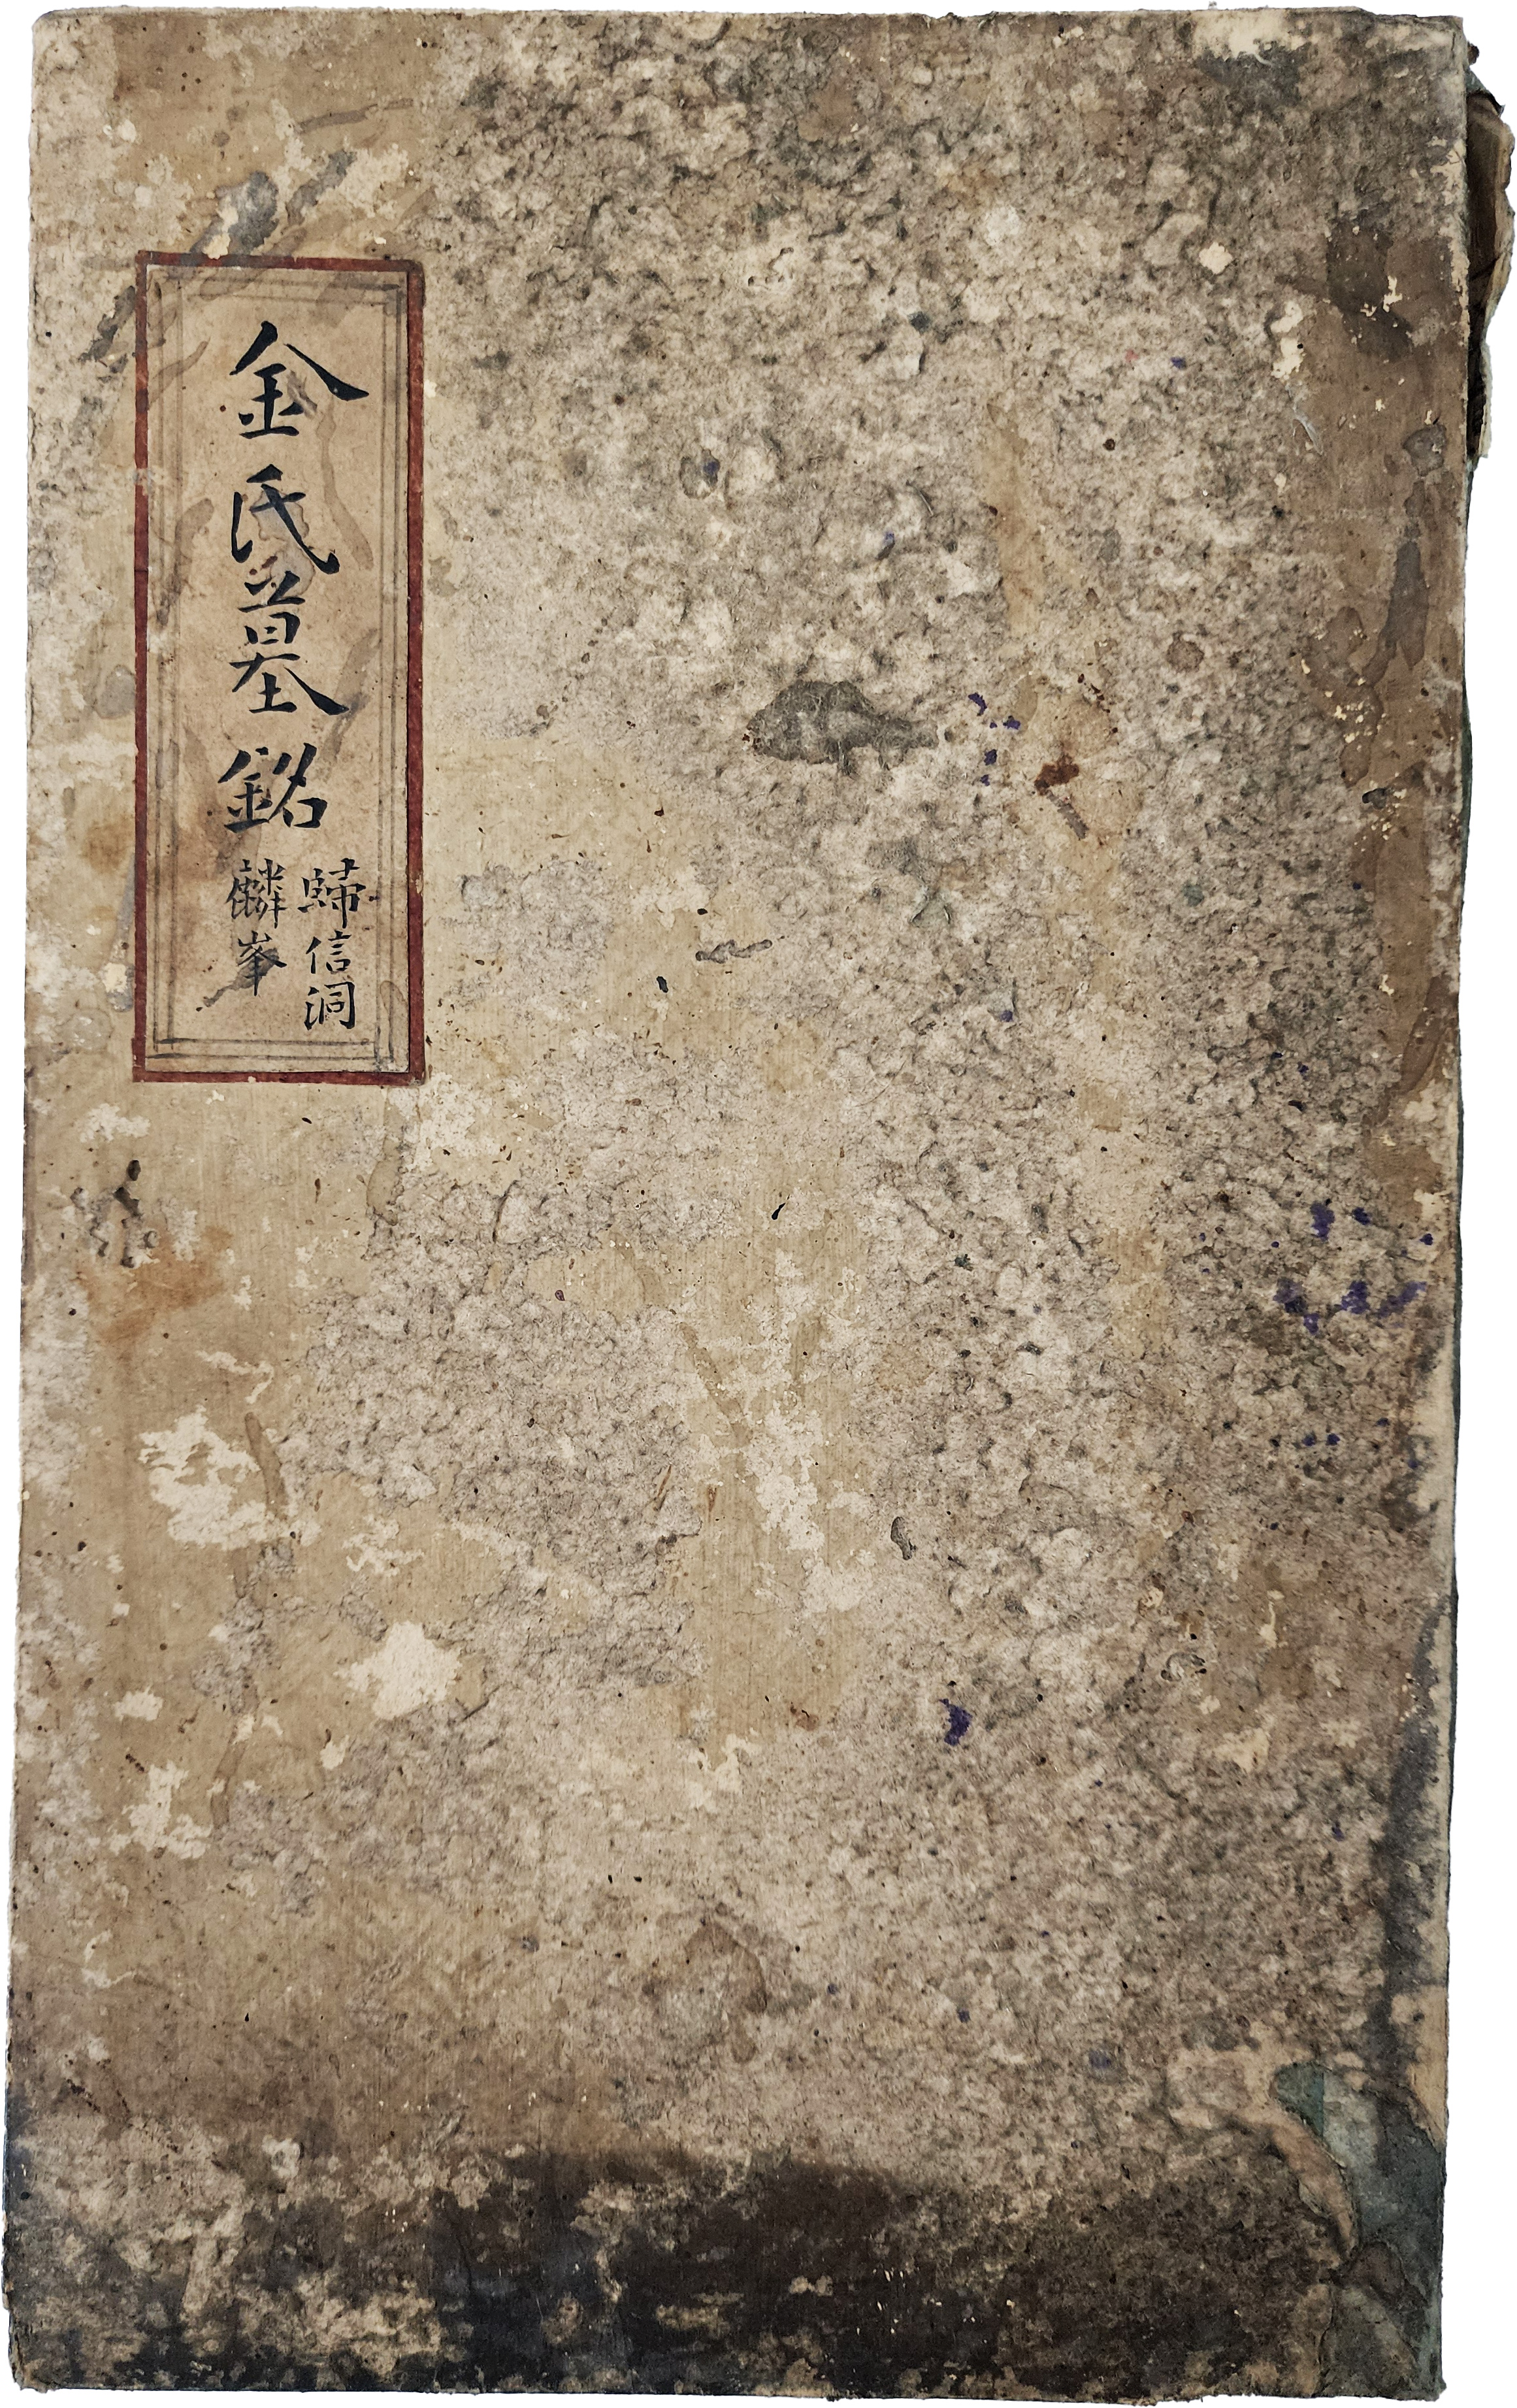 金氏墓銘
歸信洞
麟峯